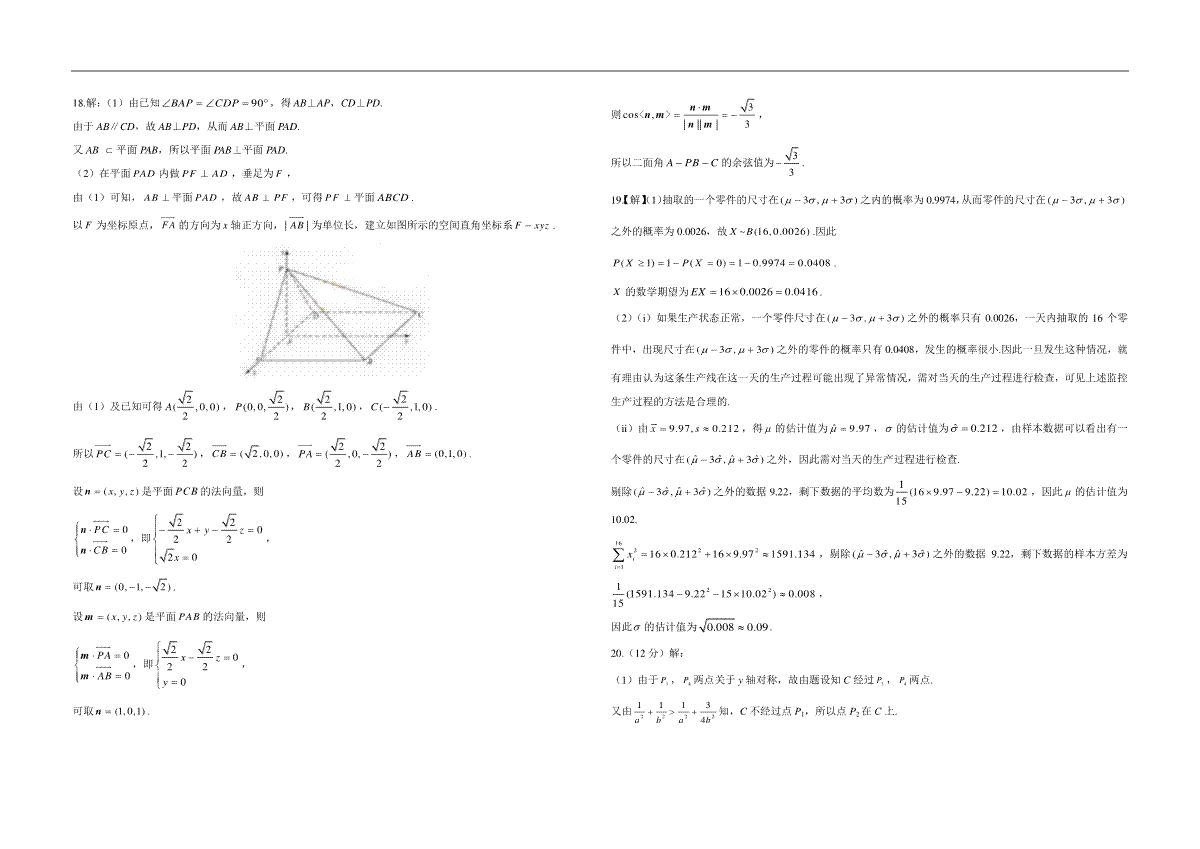 18.解：（1）由已知∠BAP=∠CDP=90°，得 AB⊥AP，CD⊥PD.
由于 AB∥CD，故 AB⊥PD，从而 AB⊥平面 PAD.
又 AB ⊂平面 PAB，所以平面 PAB⊥平面 PAD.
（2）在平面 PAD 内做 PF ⊥ AD，垂足为 F，
由（1）可知，AB ⊥平面 PAD，故 AB ⊥ PF，可得 PF ⊥平面 ABCD.
以 F 为坐标原点，FA 的方向为 x 轴正方向，|AB| 为单位长，建立如图所示的空间直角坐标系 F−xyz.
由（1）及已知可得 A(√2/2,0,0)，P(0,0,√2/2)，B(√2/2,1,0)，C(−√2/2,1,0).
所以 PC=(−√2/2,1,−√2/2)，CB=(√2,0,0)，PA=(√2/2,0,−√2/2)，AB=(0,1,0).
设 n=(x,y,z) 是平面 PCB 的法向量，则
{n·PC=0 n·CB=0，即 {−√2/2x+y−√2/2z=0 √2x=0，
可取 n=(0,−1,−√2).
设 m=(x,y,z) 是平面 PAB 的法向量，则
{m·PA=0 m·AB=0，即 {√2/2x−√2/2z=0 y=0，
可取 n=(1,0,1).
则 cos<n,m>=n·m/|n||m|=−√3/3，
所以二面角 A−PB−C 的余弦值为−√3/3.
19【解】（1）抽取的一个零件的尺寸在(μ−3σ,μ+3σ)之内的概率为 0.9974，从而零件的尺寸在(μ−3σ,μ+3σ)
之外的概率为 0.0026，故 X~B(16,0.0026).因此
P(X≥1)=1−P(X=0)=1−0.9974=0.0408.
X 的数学期望为 EX=16×0.0026=0.0416.
（2）（i）如果生产状态正常，一个零件尺寸在(μ−3σ,μ+3σ)之外的概率只有 0.0026，一天内抽取的 16 个零
件中，出现尺寸在(μ−3σ,μ+3σ)之外的零件的概率只有 0.0408，发生的概率很小.因此一旦发生这种情况，就
有理由认为这条生产线在这一天的生产过程可能出现了异常情况，需对当天的生产过程进行检查，可见上述监控
生产过程的方法是合理的.
（ii）由 x̄=9.97,s≈0.212，得 μ 的估计值为 μ̂=9.97，σ 的估计值为 σ̂=0.212，由样本数据可以看出有一
个零件的尺寸在(μ̂−3σ̂,μ̂+3σ̂)之外，因此需对当天的生产过程进行检查.
剔除(μ̂−3σ̂,μ̂+3σ̂)之外的数据 9.22，剩下数据的平均数为 1/15(16×9.97−9.22)=10.02，因此 μ 的估计值为
10.02.
∑xᵢ²=16×0.212²+16×9.97²≈1591.134，剔除(μ̂−3σ̂,μ̂+3σ̂)之外的数据 9.22，剩下数据的样本方差为
1/15(1591.134−9.22²−15×10.02²)≈0.008，
因此 σ 的估计值为 √0.008≈0.09.
20.（12 分）解：
（1）由于 P₃，P₄ 两点关于 y 轴对称，故由题设知 C 经过 P₃，P₄ 两点.
又由 1/a²+1/b²>1/a²+3/4b² 知，C 不经过点 P₁，所以点 P₂ 在 C 上.